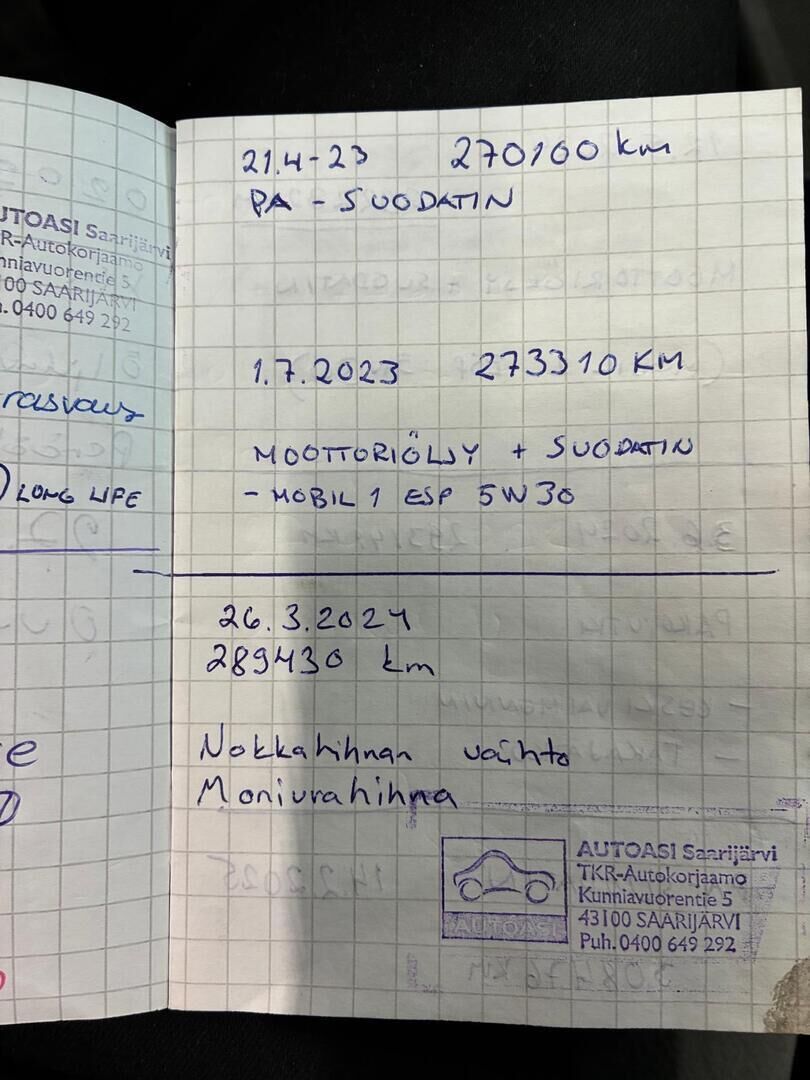 JTOASI Saarijärvi
R-Autokorjaamo
nniavuorentie 5
00 SAARIJÄRVI
. 0400 649 292
rasvaus
LONG LIFE
e
21.4-23 270100 km
PA - SUODATIN
1.7.2023 273310 KM
MOOTTORIÖLJY + SUODATIN
- MOBIL 1 ESP 5W30
26.3.2024
289430 km
Nokkahihnan vaihto
Moniurahihna
AUTOASI Saarijärvi
TKR-Autokorjaamo
Kunniavuorentie 5
43100 SAARIJÄRVI
Puh. 0400 649 292
AUTOASI